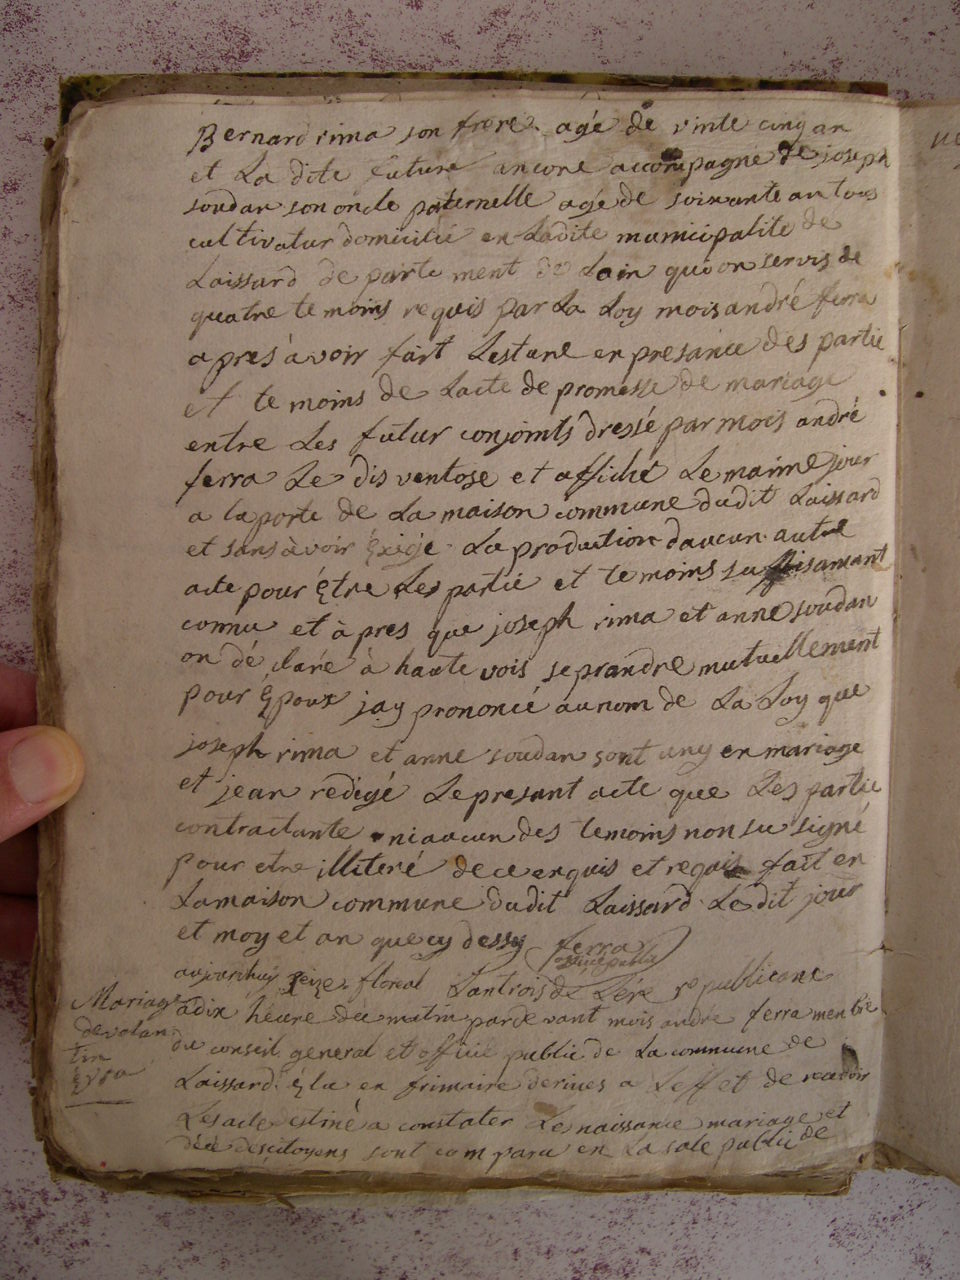 Bernard rima son frere agé de vinte cinq an
et La dite future ancore accompagné de joseph
soudan son oncle paternelle agé de soixante an tous
cultivatur domicilié en Ladite municipalité de
Laissard de parte ment de Lain qui on servis de
quatre te moins requis par La Loy mois andré ferra
apres avoir fait Lesture en presance des partie
et te moins de Lacte de promesse de mariage
entre Les futur conjoints dressé par mois andré
ferra Le dis ventose et affiché Le maime jour
a la porte de La maison commune dudit Laissard
et sans avoir Exigé La production daucun autre
acte pour Etre Les partie et te moins suffisamant
connu et à pres que joseph rima et anne soudan
on dé claré à haute vois se prandre mutuellement
pour Epoux jay prononcé au nom de La Loy que
joseph rima et anne soudan sont uny en mariage
et jean redigé Le presant acte que Les partie
contractante ni aucun des temoins non su signé
pour etre illiteré de ce enquis et requis fait en
La maison commune dudit Laissard Le dit jour
et moy et an que cy dessus ferra
aujourdhuy seize floreal Lantrois de Lere republicane
a dix heure du matin par de vant mois andre ferra menbre
du conseil general et officié public de La commune de
Laissard Elu en frimaire dernies a Leffet de recevoir
Les acte destiné a constater Le naissance mariage et
décé des citoyens sont comparu en La sale public de
Mariage
de valan
tin